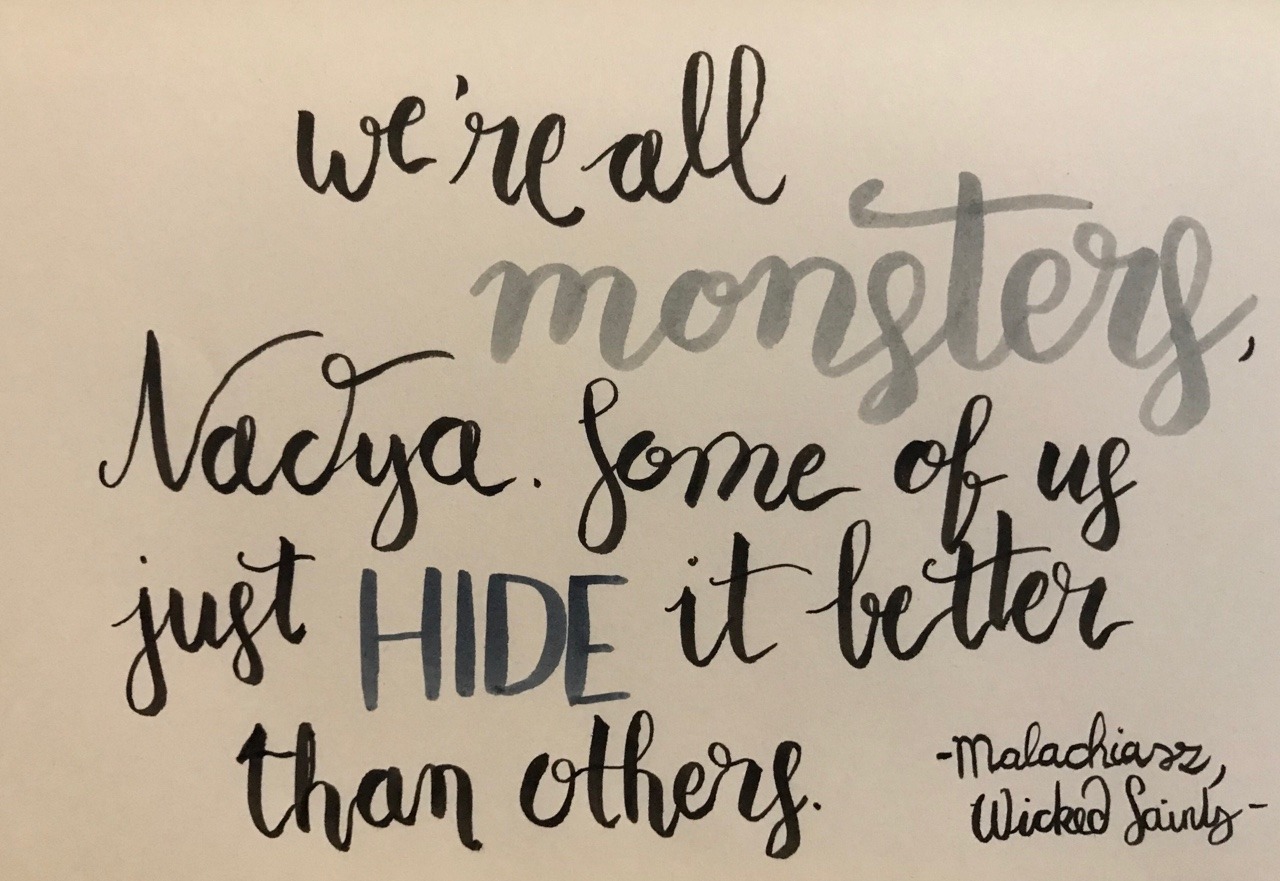 we're all
monsters,
Nadya. Some of us
just HIDE it better
than others.
-Malachiasz,
Wicked Saints-